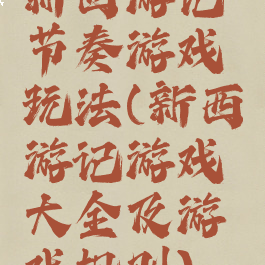 新西游记
节奏游戏
玩法(新西
游记游戏
大全及游
戏规则)